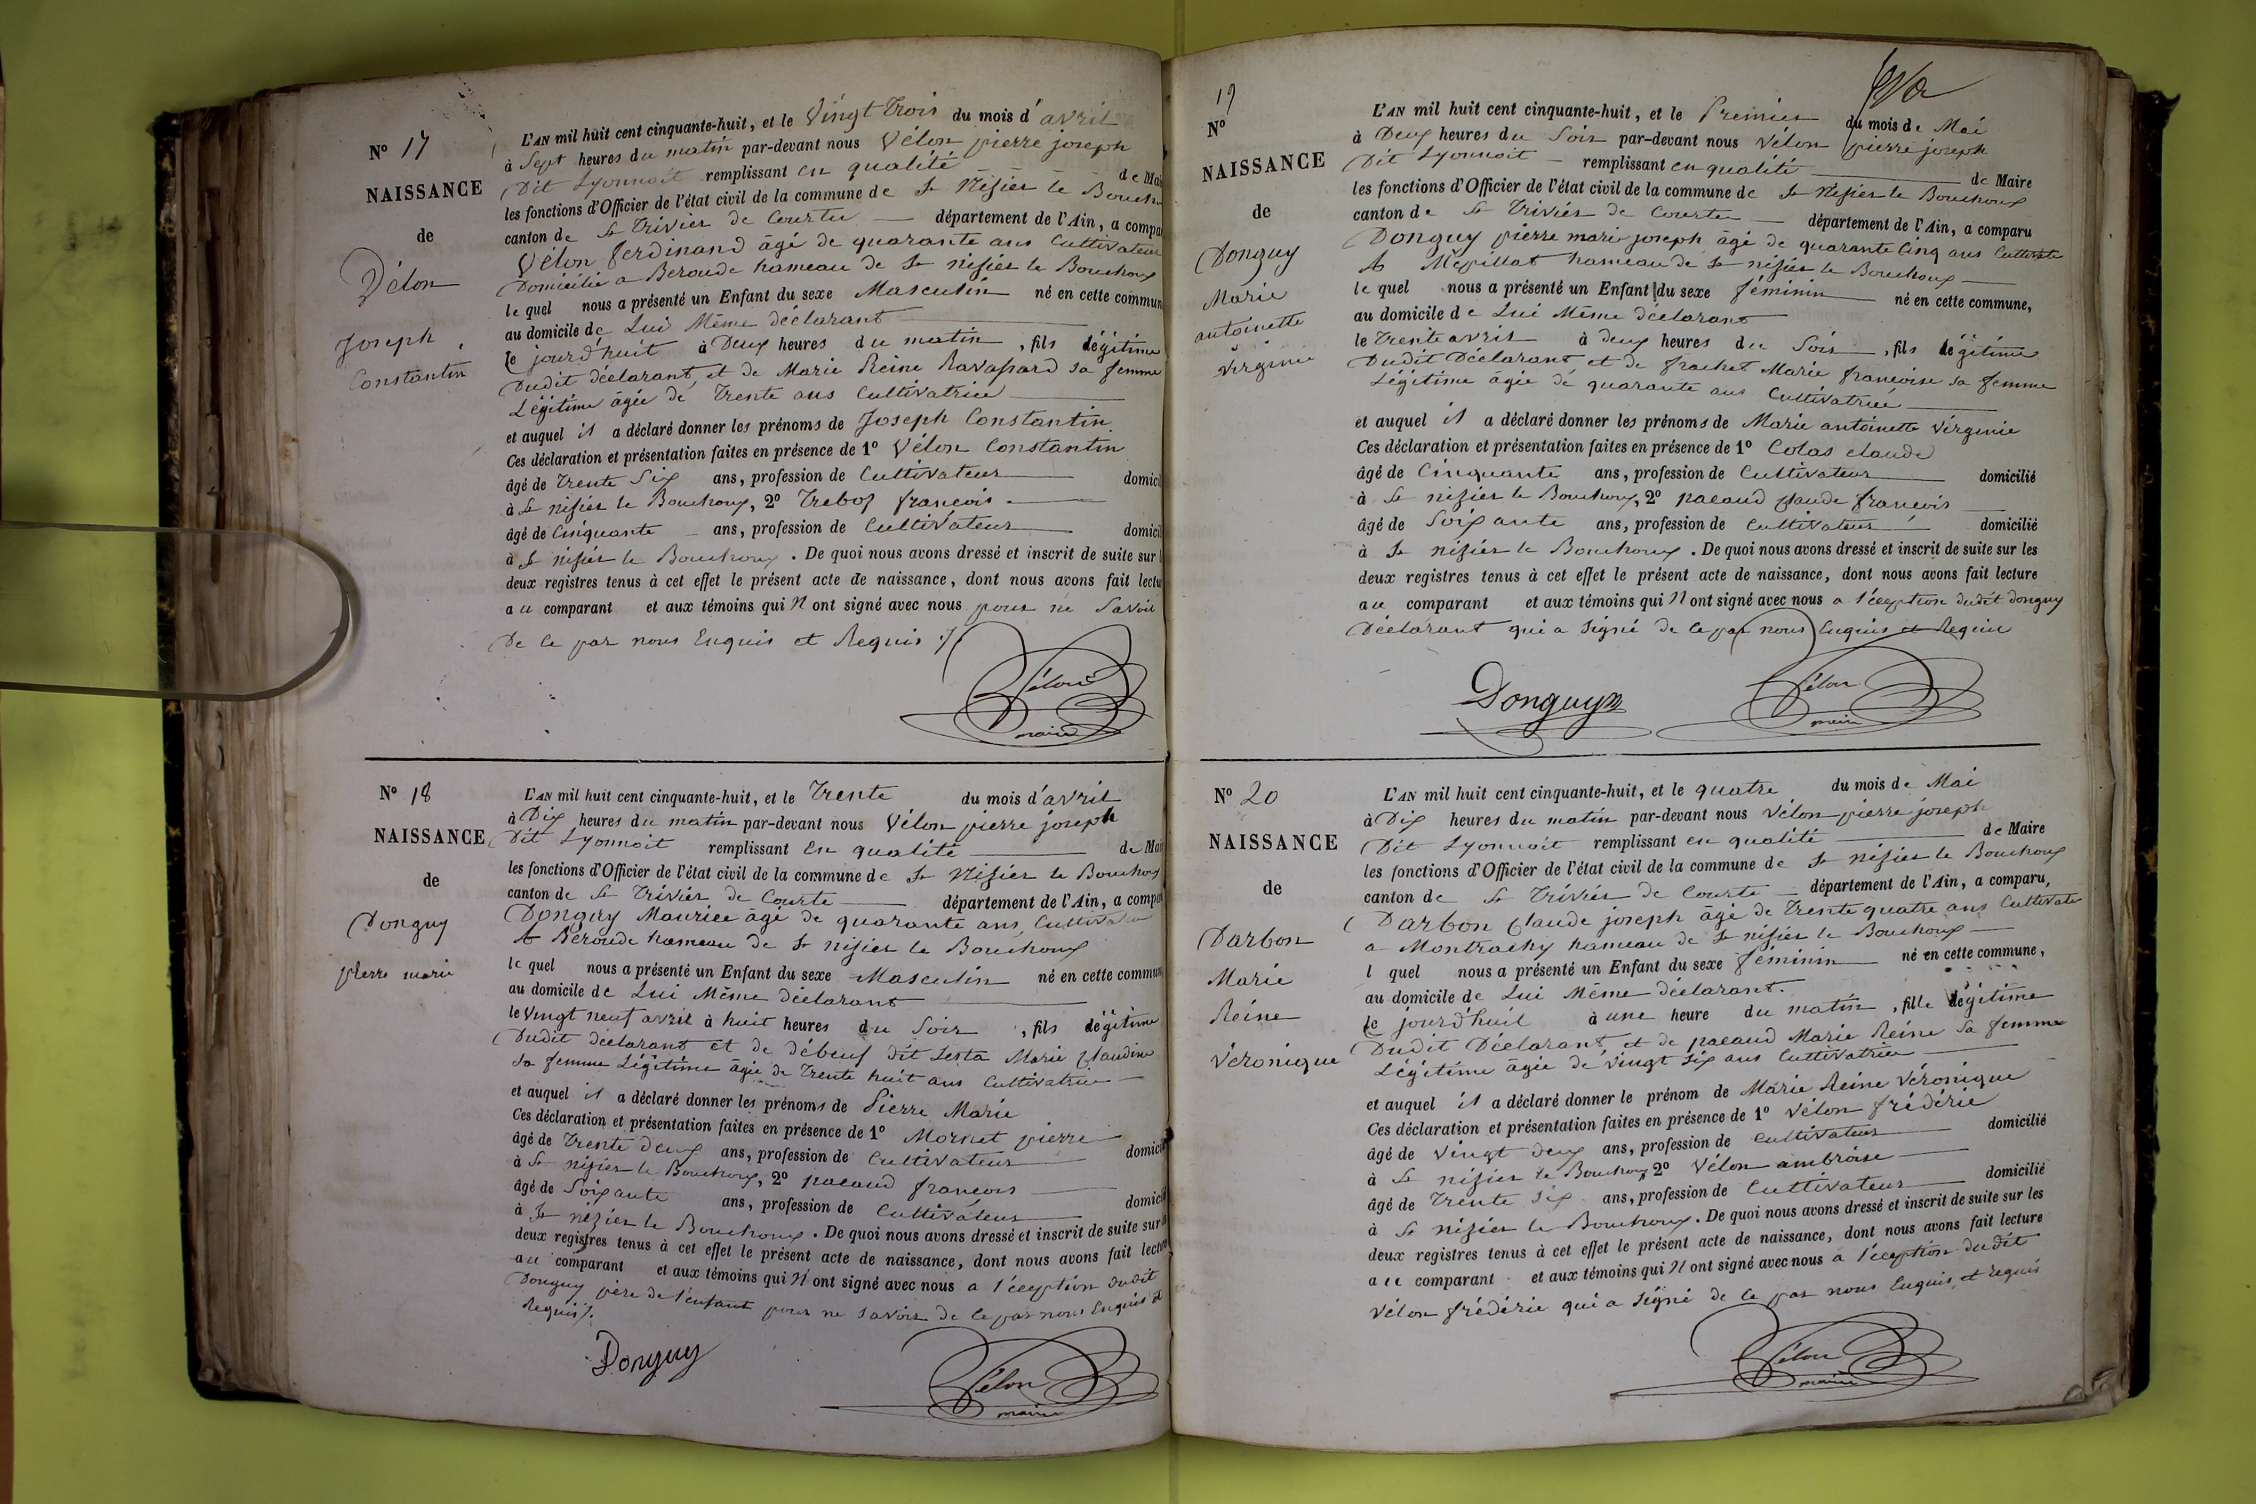 N° 17
NAISSANCE
de
Vélon
Joseph
Constantin
L'AN mil huit cent cinquante-huit, et le Vingt Trois du mois d'avril
à Sept heures du matin par-devant nous Vélon pierre joseph
Dit Lyonnoit remplissant en qualité de Mai
les fonctions d'Officier de l'état civil de la commune de St Nizier le Bouchou
canton de St Trivier de Courte département de l'Ain, a compa
Vélon ferdinand âgé de quarante ans Cultivateur
Domicilié a Beroude hameau de St nizier le Bouchoux
le quel nous a présenté un Enfant du sexe Masculin né en cette commun
au domicile de Lui Même déclarant
le jourd'huit à Deux heures du matin, fils légitime
Dudit déclarant et de Marie Reine Ravassard sa femme
Légitime âgée de Trente ans Cultivatrice
et auquel il a déclaré donner les prénoms de Joseph Constantin
Ces déclaration et présentation faites en présence de 1° Vélon Constantin
âgé de Trente Six ans, profession de Cultivateur domicil
à St nizier le Bouchoux, 2° Treboz francois
âgé de Cinquante ans, profession de Cultivateur domicil
à St nizier le Bouchoux. De quoi nous avons dressé et inscrit de suite sur l
deux registres tenus à cet effet le présent acte de naissance, dont nous avons fait lectu
au comparant et aux témoins qui N'ont signé avec nous pour ne Savoir
De ce par nous Enquis et Requis ./.
Vélon
maire
N° 18
NAISSANCE
de
Donguy
pierre marie
L'AN mil huit cent cinquante-huit, et le Trente du mois d'avril
à Dix heures du matin par-devant nous Vélon pierre joseph
Dit Lyonnoit remplissant en qualité de Mai
les fonctions d'Officier de l'état civil de la commune de St Nizier le Bouchoux
canton de St Trivier de Courte département de l'Ain, a compa
Donguy Maurice âgé de quarante ans, Cultivateur
A Beroude hameau de St nizier le Bouchoux
le quel nous a présenté un Enfant du sexe Masculin né en cette commun
au domicile de Lui Même déclarant
le Vingt neuf avril à huit heures du Soir, fils légitime
Dudit déclarant et de débeuf dit Lesta Marie Claudine
sa femme Légitime âgée de Trente huit ans Cultivatrice
et auquel il a déclaré donner les prénoms de Pierre Marie
Ces déclaration et présentation faites en présence de 1° Mornet pierre
âgé de Trente deux ans, profession de Cultivateur domicil
à St nizier le Bouchoux, 2° pacaud francois
âgé de Soixante ans, profession de Cultivateur domicil
à St nizier le Bouchoux. De quoi nous avons dressé et inscrit de suite sur l
deux registres tenus à cet effet le présent acte de naissance, dont nous avons fait lecture
au comparant et aux témoins qui N'ont signé avec nous a l'éception dudit
Donguy père de l'enfant pour ne savoir de ce par nous Enquis et
Requis ./.
Donguy
Vélon
maire
19
N°
NAISSANCE
de
Donguy
Marie
antoinette
virginie
L'AN mil huit cent cinquante-huit, et le Premier du mois de Mai
à Deux heures du Soir par-devant nous Vélon pierre joseph
Dit Lyonnoit remplissant en qualité de Maire
les fonctions d'Officier de l'état civil de la commune de St Nizier le Bouchoux
canton de St Trivier de Courte département de l'Ain, a comparu
Donguy pierre marie joseph âgé de quarante Cinq ans Cultivate
A Mépillat hameau de St nizier le Bouchoux
le quel nous a présenté un Enfant du sexe féminin né en cette commune,
au domicile de Lui Même déclarant
le Trente avril à deux heures du Soir, fils légitime
Dudit Déclarant et de frachet Marie francoise sa femme
Légitime âgée de quarante ans Cultivatrice
et auquel il a déclaré donner les prénoms de Marie antoinette virginie
Ces déclaration et présentation faites en présence de 1° Colas claude
âgé de Cinquante ans, profession de Cultivateur domicilié
à St nizier le Bouchoux, 2° pacaud claude francois
âgé de Soixante ans, profession de Cultivateur domicilié
à St nizier le Bouchoux. De quoi nous avons dressé et inscrit de suite sur les
deux registres tenus à cet effet le présent acte de naissance, dont nous avons fait lecture
au comparant et aux témoins qui N'ont signé avec nous a l'éception dudit donguy
Déclarant qui a signé de ce par nous Enquis et Requis
Donguy
Vélon
maire
N° 20
NAISSANCE
de
Darbon
Marie
Réine
Véronique
L'AN mil huit cent cinquante-huit, et le quatre du mois de Mai
à Dix heures du matin par-devant nous Vélon pierre joseph
Dit Lyonnoit remplissant en qualité de Maire
les fonctions d'Officier de l'état civil de la commune de St Nizier le Bouchoux
canton de St Trivier de Courte département de l'Ain, a comparu,
Darbon Claude joseph âgé de Trente quatre ans Cultivate
a Montrachy hameau de St nizier le Bouchoux
l quel nous a présenté un Enfant du sexe féminin né en cette commune,
au domicile de Lui Même déclarant.
le jourd'huil à une heure du matin, fille légitime
Dudit Déclarant et de pacaud Marie Reine sa femme
Légitime âgée de Vingt Six ans Cultivatrice
et auquel il a déclaré donner le prénom de Marie Reine Véronique
Ces déclaration et présentation faites en présence de 1° Vélon frédéric
âgé de Vingt deux ans, profession de Cultivateur domicilié
à St nizier le Bouchoux 2° Vélon ambroise
âgé de Trente Six ans, profession de Cultivateur domicilié
à St nizier le Bouchoux. De quoi nous avons dressé et inscrit de suite sur les
deux registres tenus à cet effet le présent acte de naissance, dont nous avons fait lecture
au comparant et aux témoins qui N'ont signé avec nous a l'éception dudit
Vélon frédéric qui a signé de ce par nous Enquis et requis
Vélon
maire